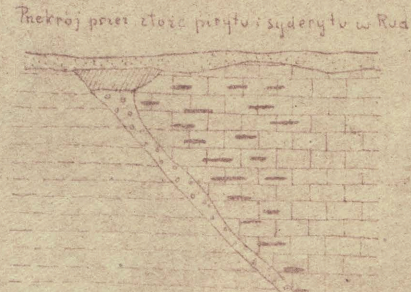 Przekrój przez złoże pirytu i syderytu w Rud